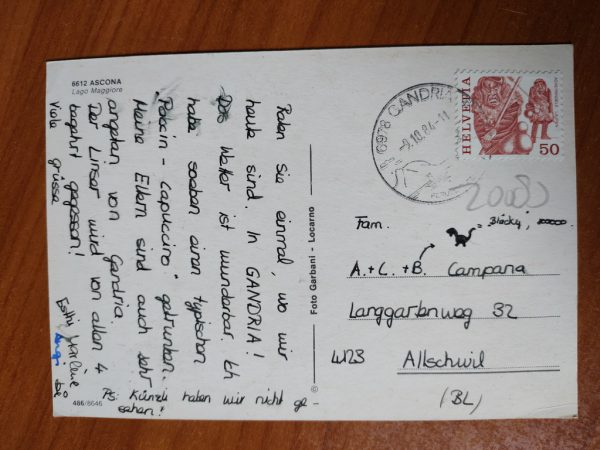 6612 ASCONA
Lago Maggiore
Raten Sie einmal, wo wir
heute sind. In GANDRIA!
Das Wetter ist wunderbar. Ich
habe soeben einen typischen
"Poccin-Capuccino" getrunken.
Meine Eltern sind auch sehr
angetan von Gandria.
Der Linser wird von allen 4
begehrt gegessen!
Viele grüsse
Esthi Marlène
PS. Künzli haben wir nicht ge-
sehen!
486/8646
© Foto Garbani - Locarno
6978 GANDRIA
-9.10.84-11
HELVETIA
50
Fam.
= Bläcky,
A. + C. + B. Campana
Langgartenweg 32
4123 Allschwil
(BL)